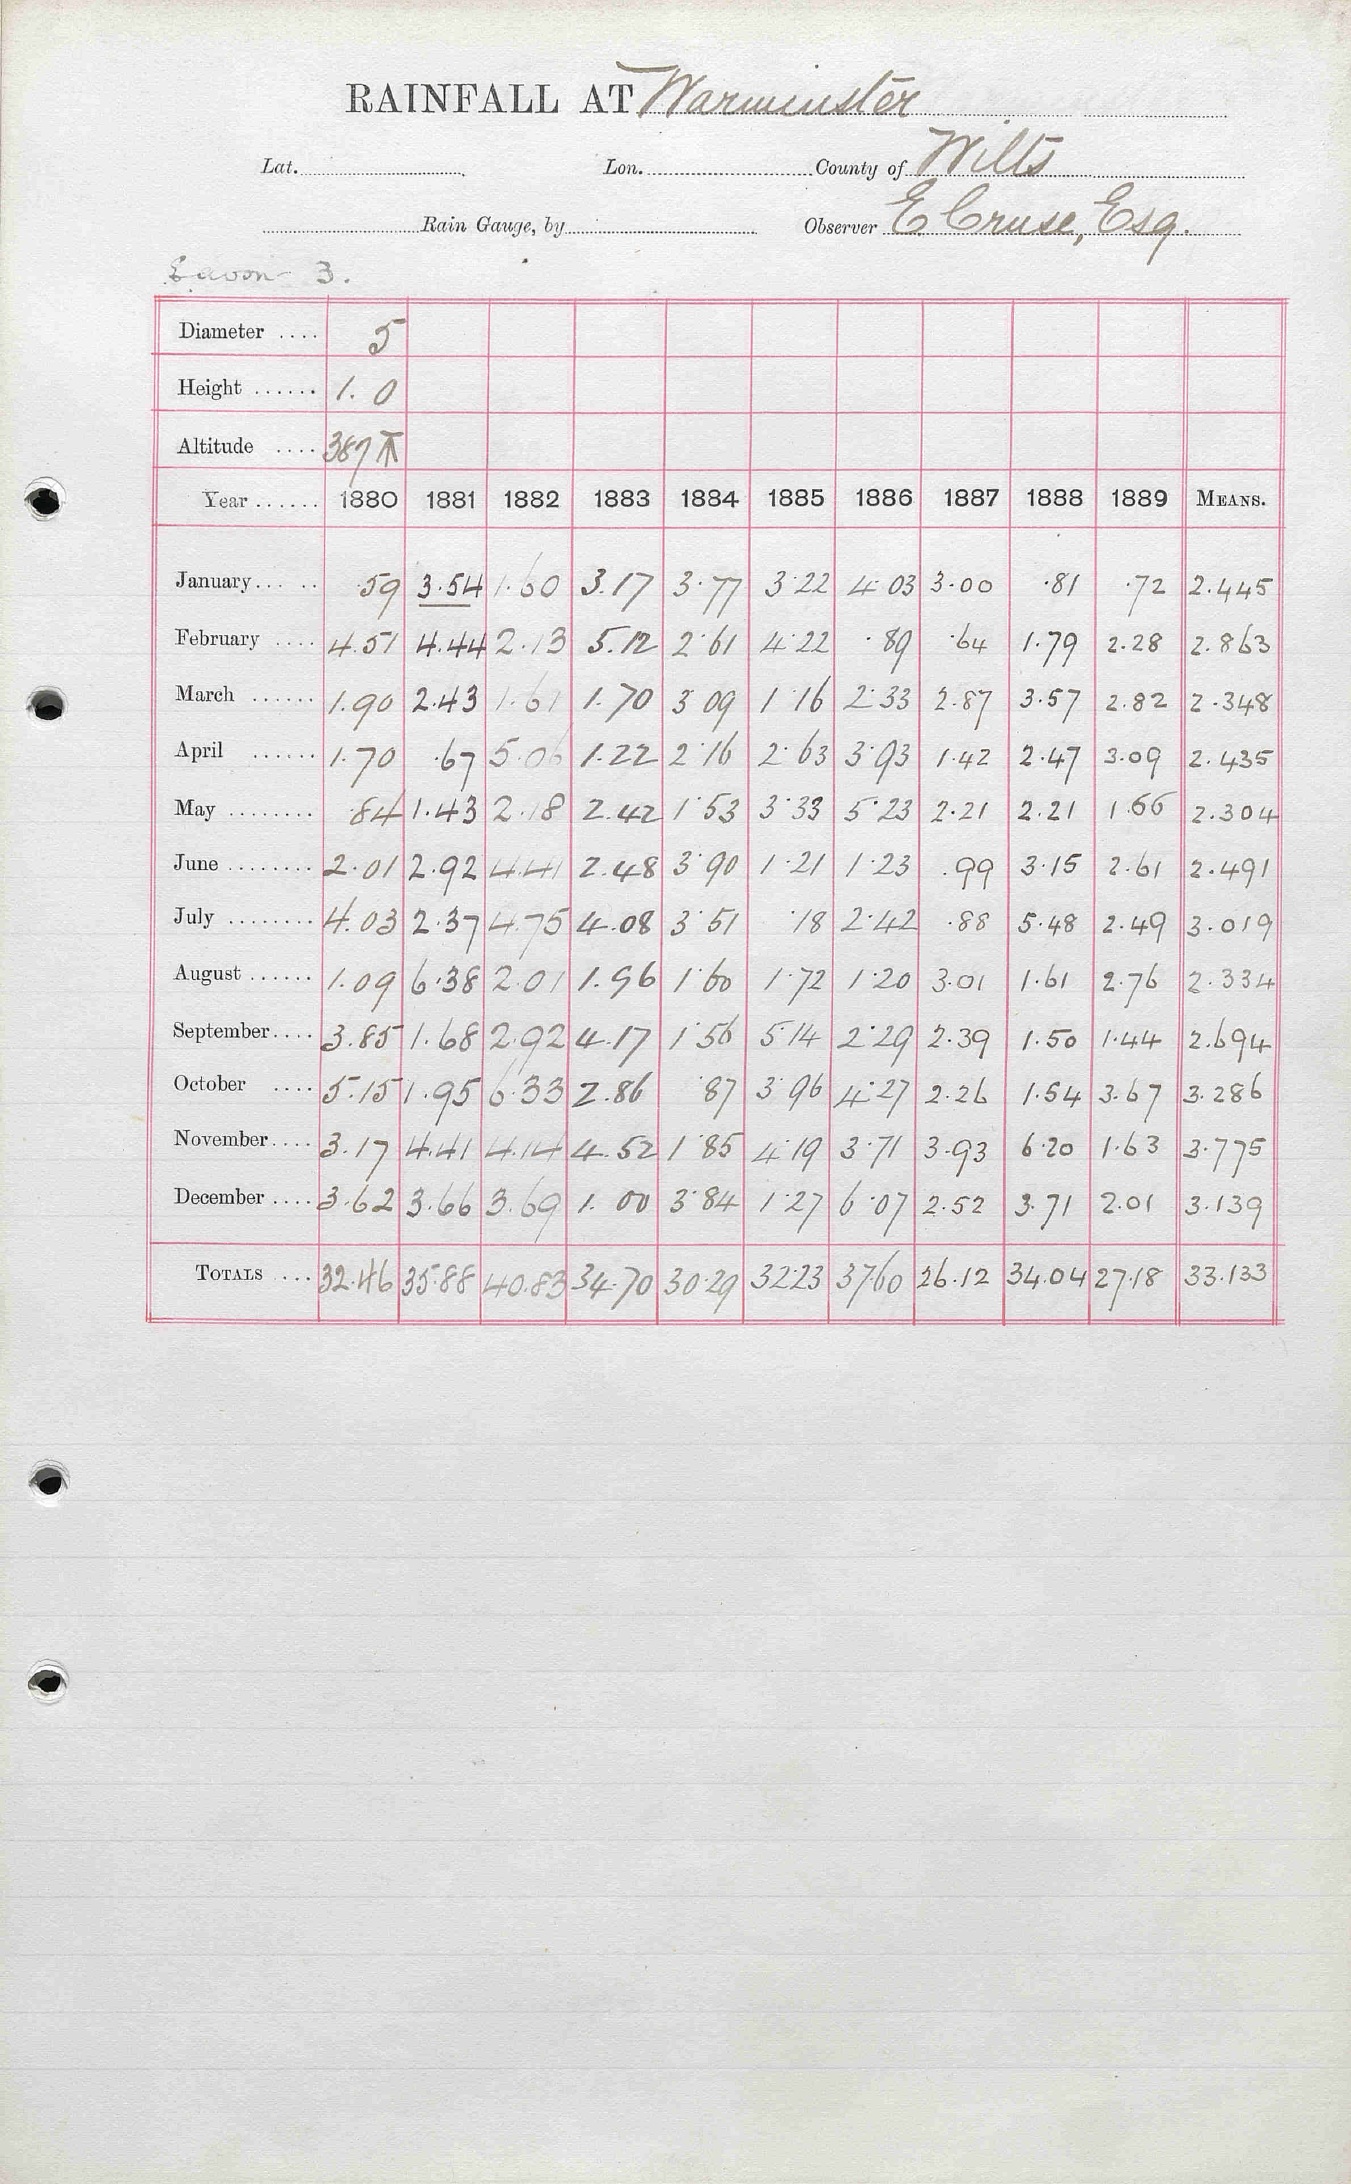 RAINFALL AT Warminster
Lat. Lon. County of Wilts
Rain Gauge, by Observer E Cruse, Esq.
3.
Diameter .... 5
Height ...... 1. 0
Altitude .... 387
Year ...... 1880 1881 1882 1883 1884 1885 1886 1887 1888 1889 MEANS.
January ... .. .59 3.54 1.60 3.17 3.77 3.22 4.03 3.00 .81 .72 2.445
February .... 4.51 4.44 2.13 5.12 2.61 4.22 .89 .64 1.79 2.28 2.863
March ...... 1.90 2.43 1.61 1.70 3.09 1.16 2.33 2.87 3.57 2.82 2.348
April ...... 1.70 .67 5.06 1.22 2.16 2.63 3.93 1.42 2.47 3.09 2.435
May ........ .84 1.43 2.18 2.42 1.53 3.33 5.23 2.21 2.21 1.66 2.304
June ........ 2.01 2.92 4.41 2.48 3.90 1.21 1.23 .99 3.15 2.61 2.491
July ........ 4.03 2.37 4.75 4.08 3.51 .18 2.42 .88 5.48 2.49 3.019
August ...... 1.09 6.38 2.01 1.96 1.60 1.72 1.20 3.01 1.61 2.76 2.334
September .... 3.85 1.68 2.92 4.17 1.56 5.14 2.29 2.39 1.50 1.44 2.694
October .... 5.15 1.95 6.33 2.86 .87 3.96 4.27 2.26 1.54 3.67 3.286
November .... 3.17 4.41 4.14 4.52 1.85 4.19 3.71 3.93 6.20 1.63 3.775
December .... 3.62 3.66 3.69 1.00 3.84 1.27 6.07 2.52 3.71 2.01 3.139
TOTALS .... 32.46 35.88 40.83 34.70 30.29 32.23 37.60 26.12 34.04 27.18 33.133